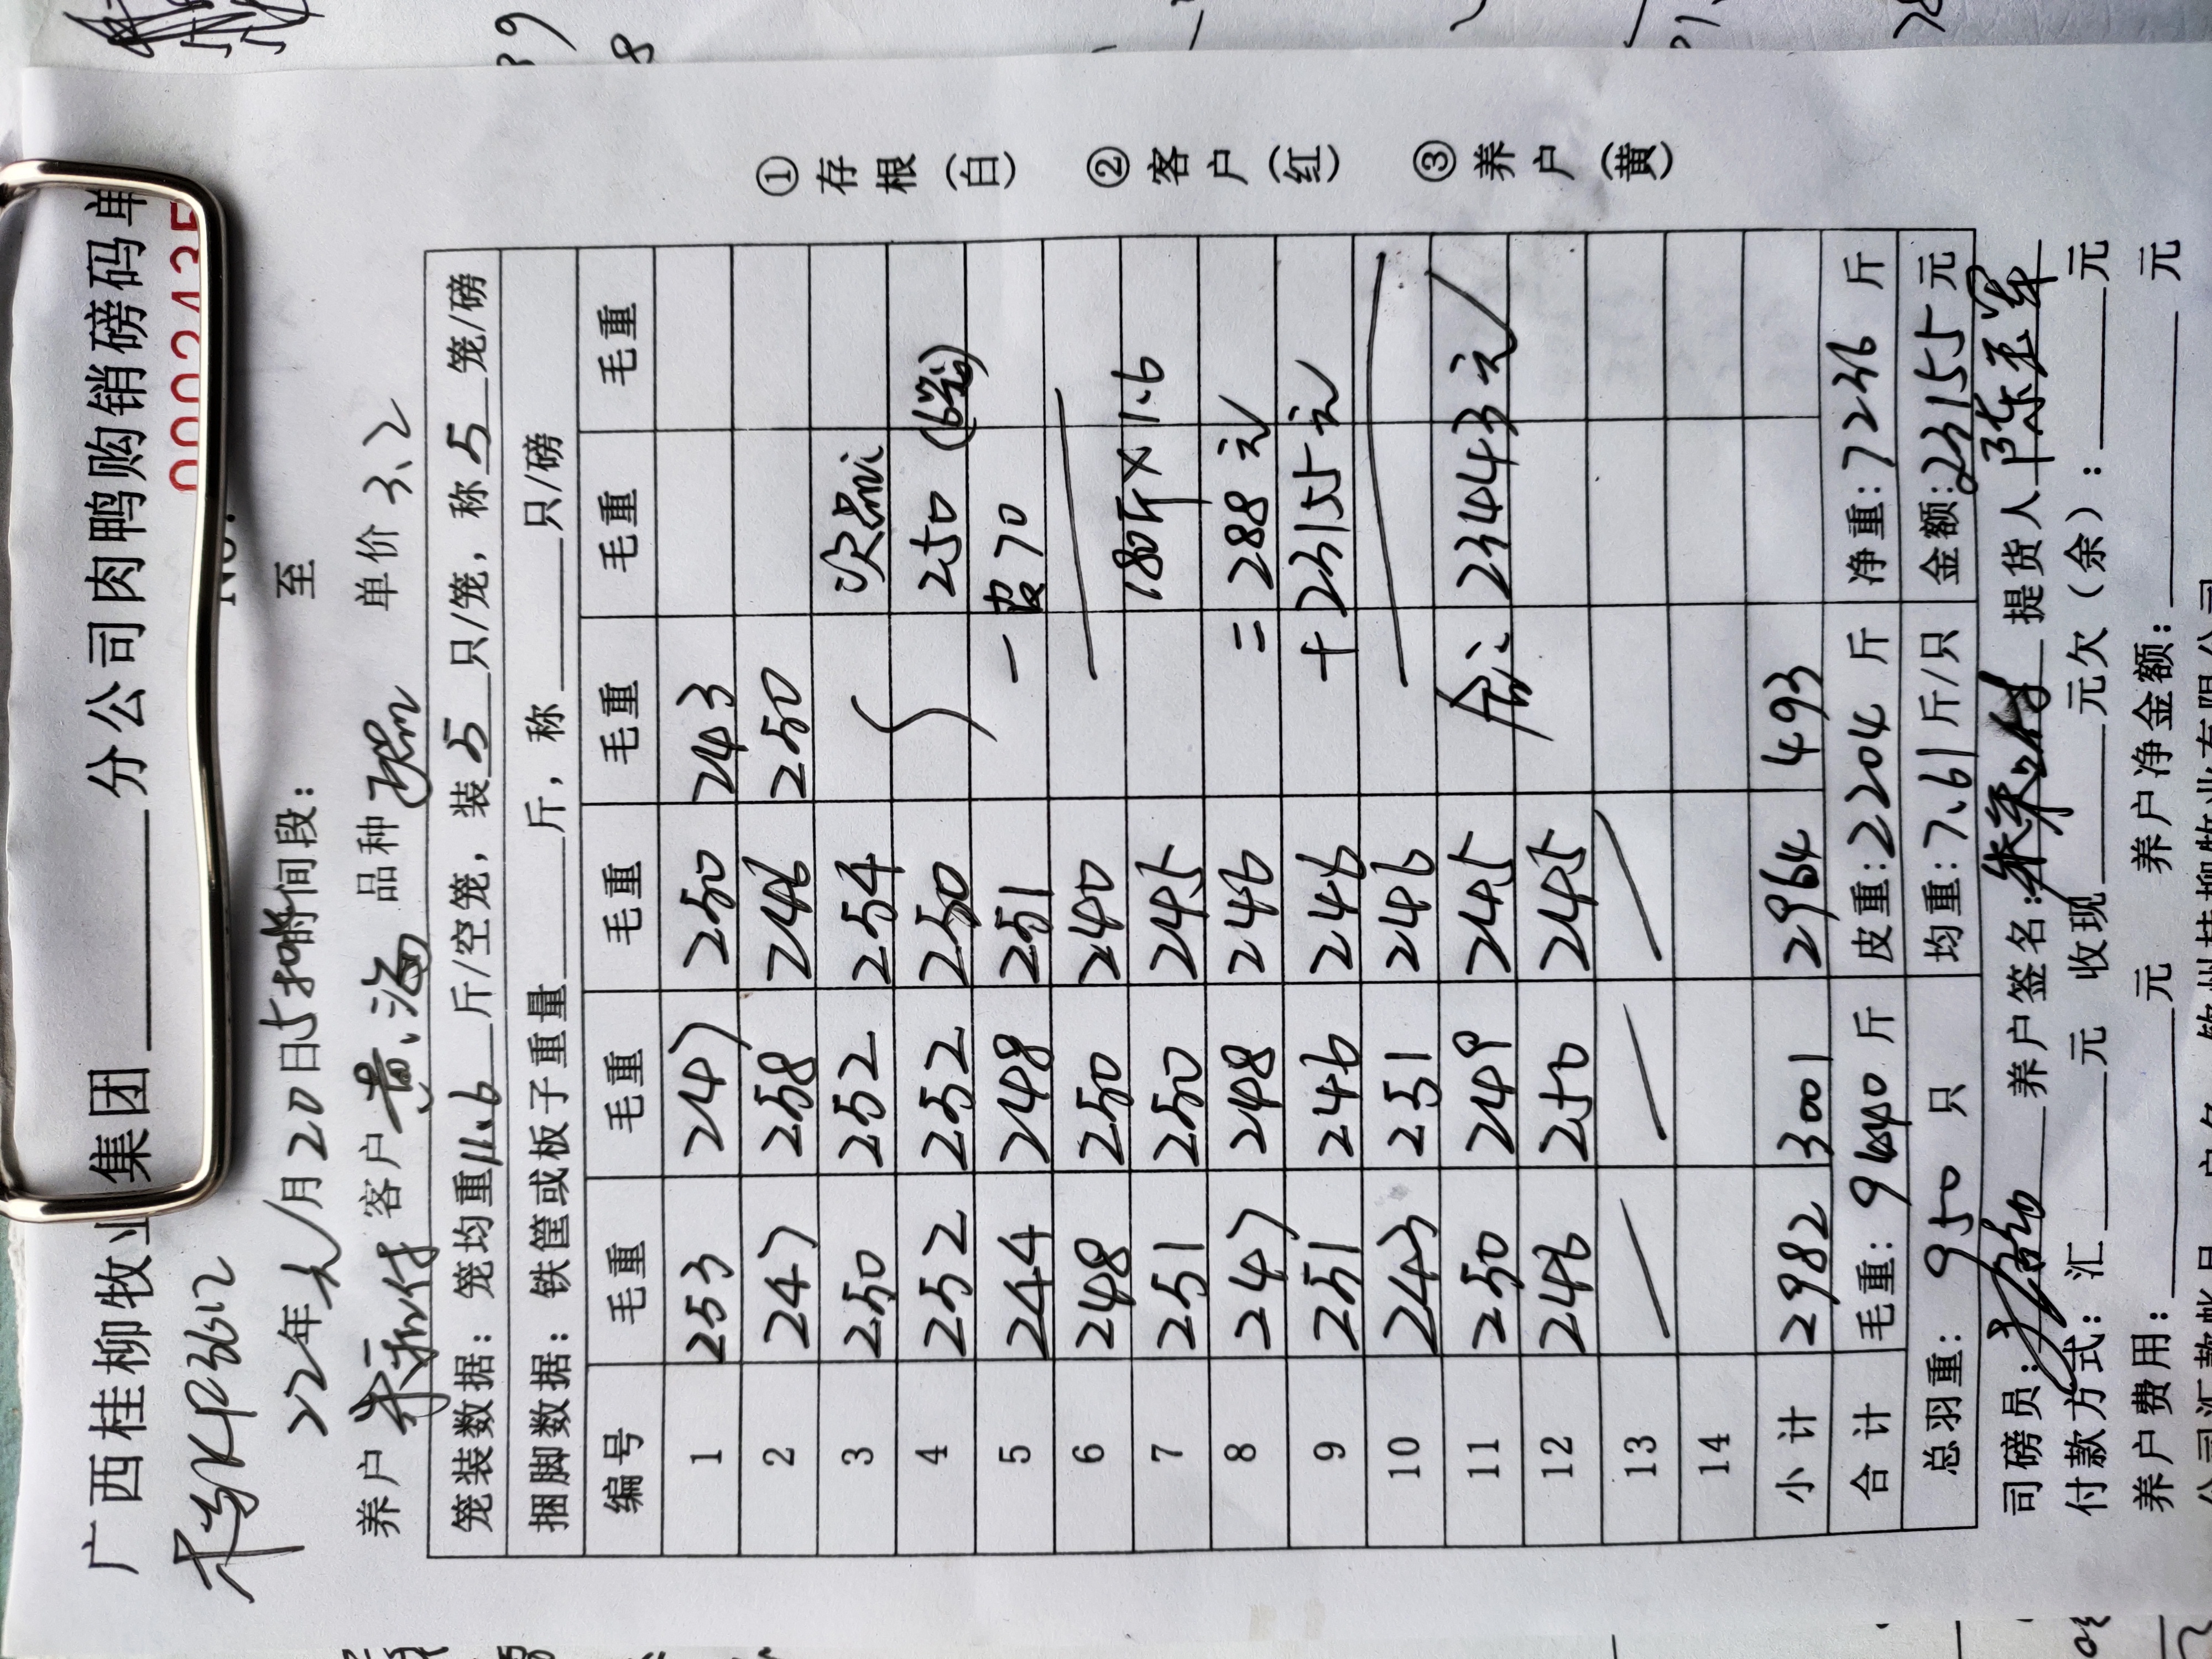 广西桂柳牧业集团 分公司肉鸭购销磅码单
桂KP3612
22年 月20日5 时间段： 至
养户 客户 黄海 品种 单价 3.2
笼装数据：笼均重11.6斤/空笼，装5只/笼，称5笼/磅
捆脚数据：铁筐或板子重量 斤，称 只/磅
编号 毛重 毛重 毛重 毛重 毛重 毛重
1 253 247 250 243
2 247 258 246 250
3 250 252 254 次品
4 252 252 250 250 (6笼)
5 244 248 251 -皮70
6 248 250 240
7 251 250 245 180斤×1.6
8 247 248 246 =288元
9 251 246 246 +23155元
10 243 251 246
11 250 249 245 合计 23443元
12 246 250 245
13
14
小计 2982 3001 2964 493
合计 毛重：9440斤 皮重：2204斤 净重：7236斤
总羽重：950只 均重：7.61斤/只 金额：23155元
司磅员： 养户签名： 提货人
付款方式：汇 元 收现 元欠（余）： 元
养户费用： 元 养户净金额： 元
①存根（白） ②客户（红） ③养户（黄）